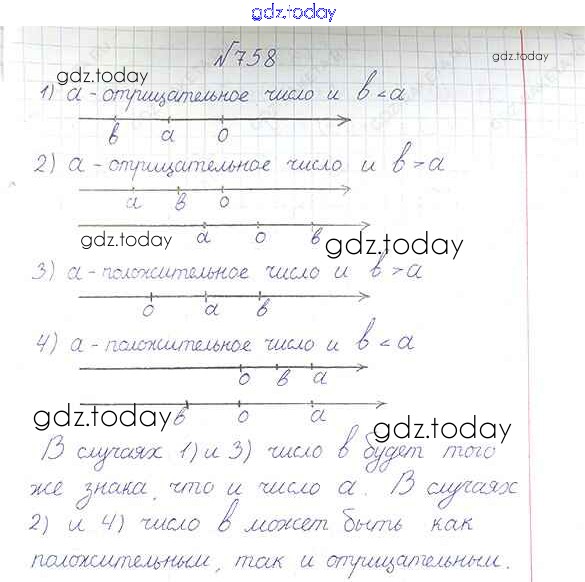 gdz.today
№758
gdz.today
gdz.today
1) а - отрицательное число и в < а
в а 0
2) а - отрицательное число и в > а
а в 0
а 0 в
gdz.today
gdz.today
3) а - положительное число и в > а
0 а в
4) а - положительное число и в < а
0 в а
в 0 а
gdz.today
gdz.today
В случаях 1) и 3) число в будет того
же знака, что и число а. В случаях
2) и 4) число в может быть как
положительным, так и отрицательным.